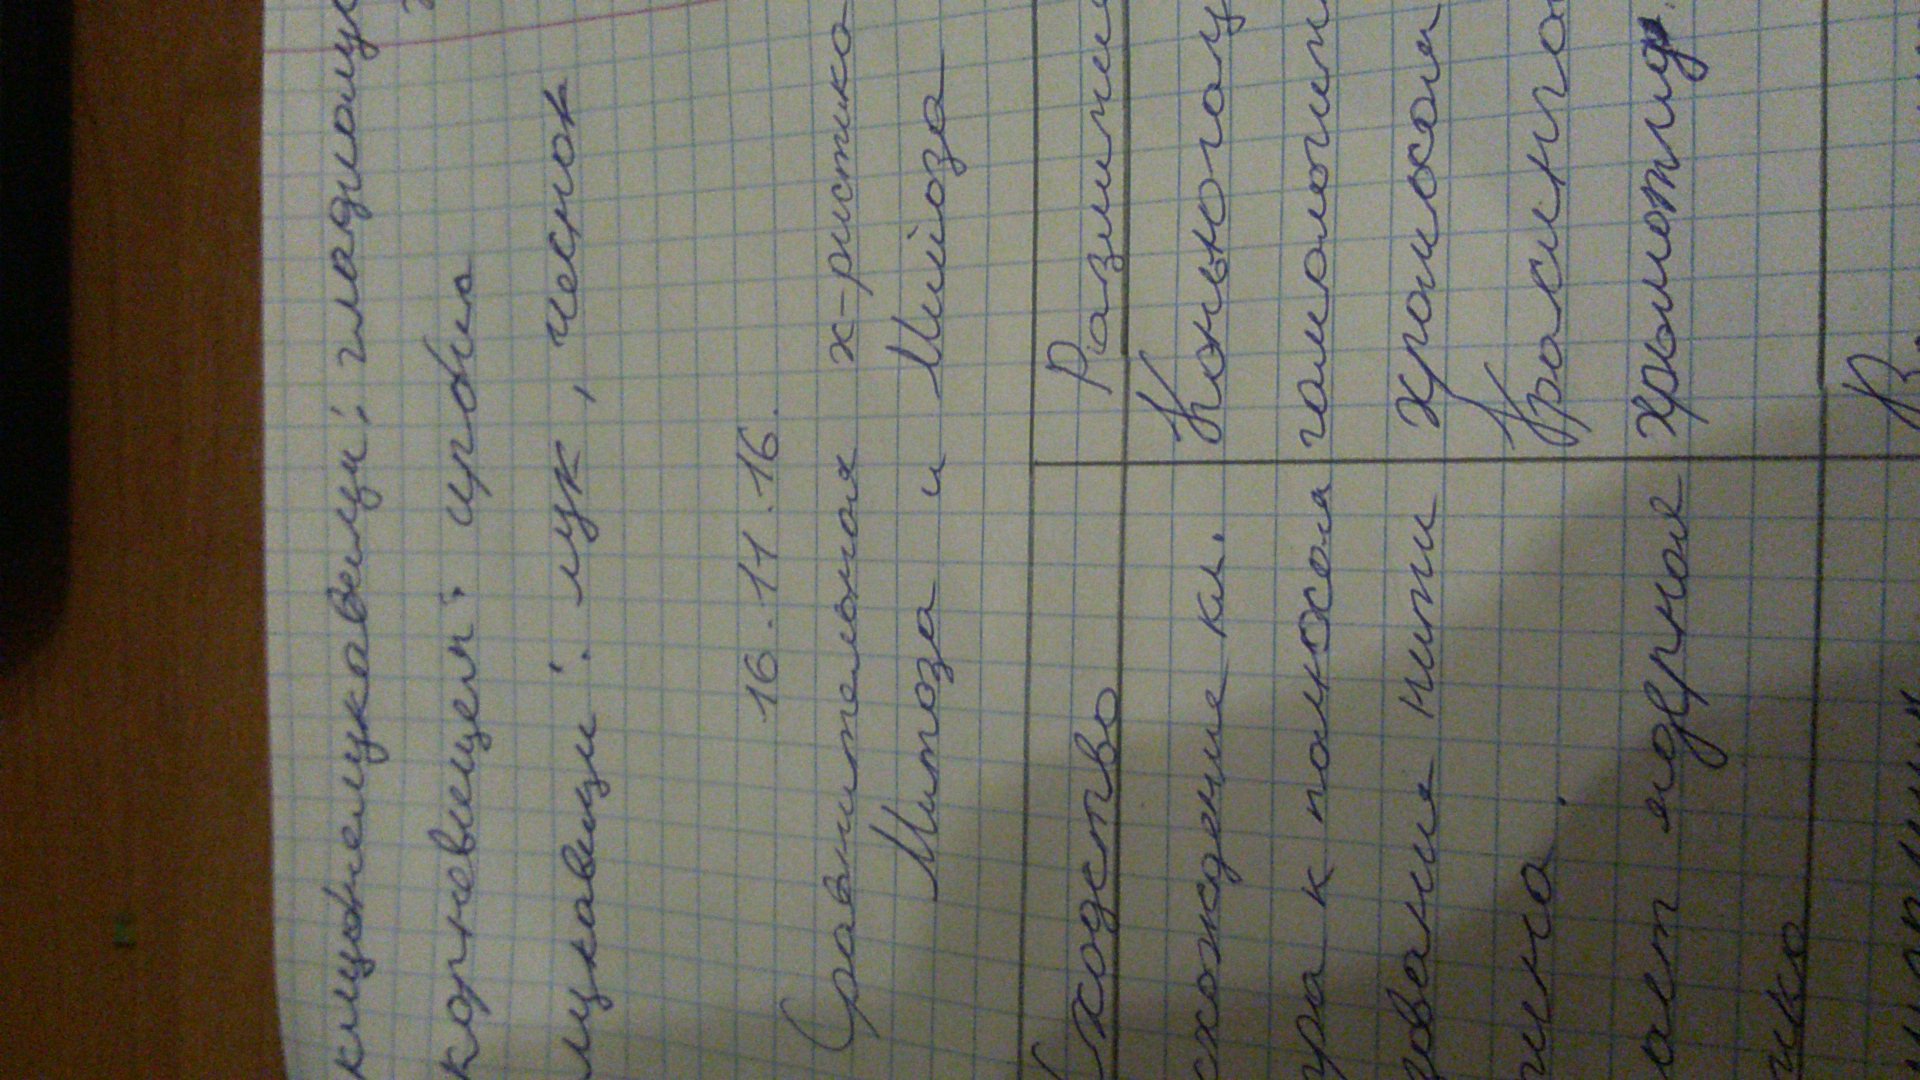 клубнелуковицы: гладиолус
корневищем: 
луковицы: лук, чеснок
16.11.16.
Сравнительная х-ристика
Митоза и Мейоза
Сходство Различие
схождение кл. Коньюгац
ра к полюсам гомологич
зование нити хромосом
Кроссинго
ает ядрная хромотид.